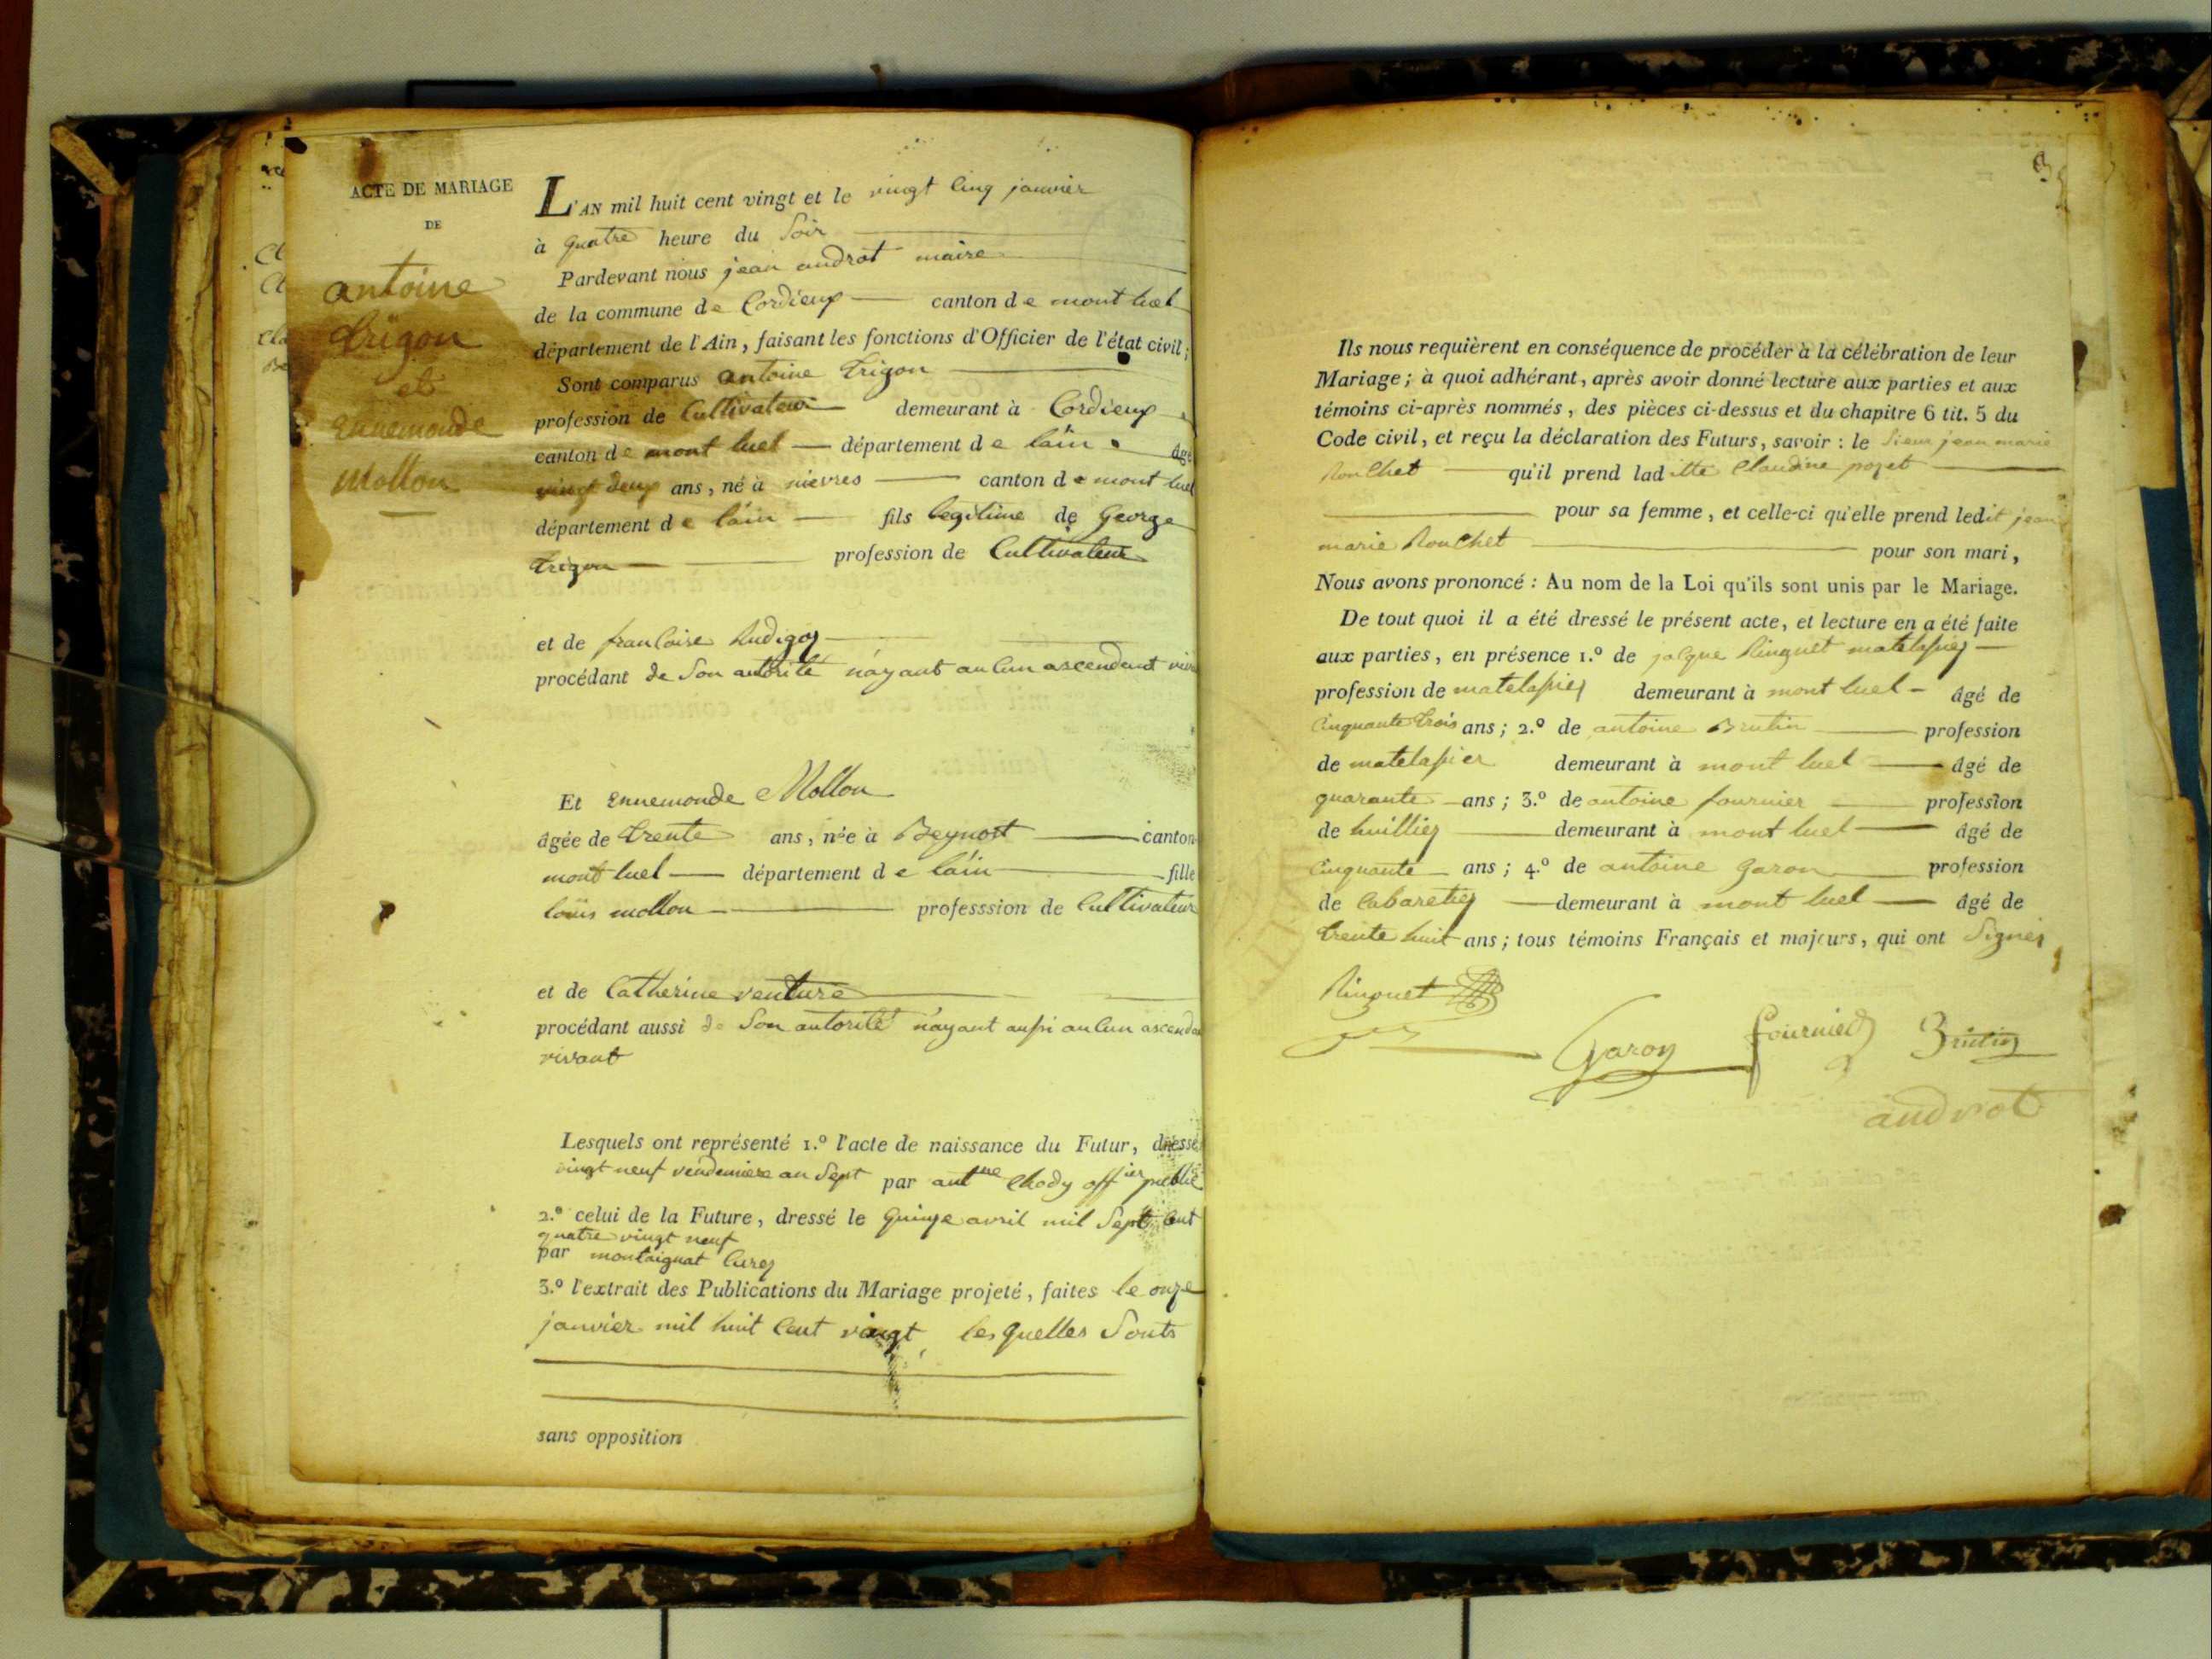 ACTE DE MARIAGE
DE
antoine
trigon
et
Ennemonde
Mollon
L'AN mil huit cent vingt et le vingt cinq janvier
à quatre heure du Soir
Pardevant nous jean androt maire
de la commune de Cordieux canton de mont luel
département de l'Ain, faisant les fonctions d'Officier de l'état civil;
Sont comparus antoine trigon
profession de Cultivateur demeurant à Cordieux
canton de mont luel département de lain âgé
vingt deux ans, né à nievres canton de mont luel
département de lain fils legitime de George
trigon profession de Cultivateur
et de francoise
procédant de Son autorité n'ayant aucun ascendant
Et Ennemonde Mollon
âgée de trente ans, née à Beynost canton
mont luel département de lain fille
loüis mollon professsion de Cultivateur
et de Catherine venture
procédant aussi de Son autorité n'ayant aussi aucun
vivant
Lesquels ont représenté 1.º l'acte de naissance du Futur, dressé
vingt neuf vendemiere an Sept par antne Chody offier public
2.º celui de la Future, dressé le quinze avril mil Sept cent
quatre vingt neuf
par montaignat curez
3.º l'extrait des Publications du Mariage projeté, faites le onze
janvier mil huit Cent vingt, lesquelles Sonts
sans opposition
Ils nous requièrent en conséquence de procéder à la célébration de leur
Mariage; à quoi adhérant, après avoir donné lecture aux parties et aux
témoins ci-après nommés, des pièces ci-dessus et du chapitre 6 tit. 5 du
Code civil, et reçu la déclaration des Futurs, savoir: le Sieur jean marie
Rouchet qu'il prend laditte Claudine pozet
pour sa femme, et celle-ci qu'elle prend ledit jean
marie Rouchet pour son mari,
Nous avons prononcé: Au nom de la Loi qu'ils sont unis par le Mariage.
De tout quoi il a été dressé le présent acte, et lecture en a été faite
aux parties, en présence 1.º de jacque Ringuet matelassier
profession de matelassier demeurant à mont luel âgé de
Cinquante trois ans; 2.º de antoine Brutin profession
de matelassier demeurant à mont luel âgé de
quarante ans; 3.º de antoine fournier profession
de huillier demeurant à mont luel âgé de
Cinquante ans; 4.º de antoine garon profession
de Cabaretier demeurant à mont luel âgé de
trente huit ans; tous témoins Français et majeurs, qui ont Signés
Ringuet
Garon fournier Brutin
androt